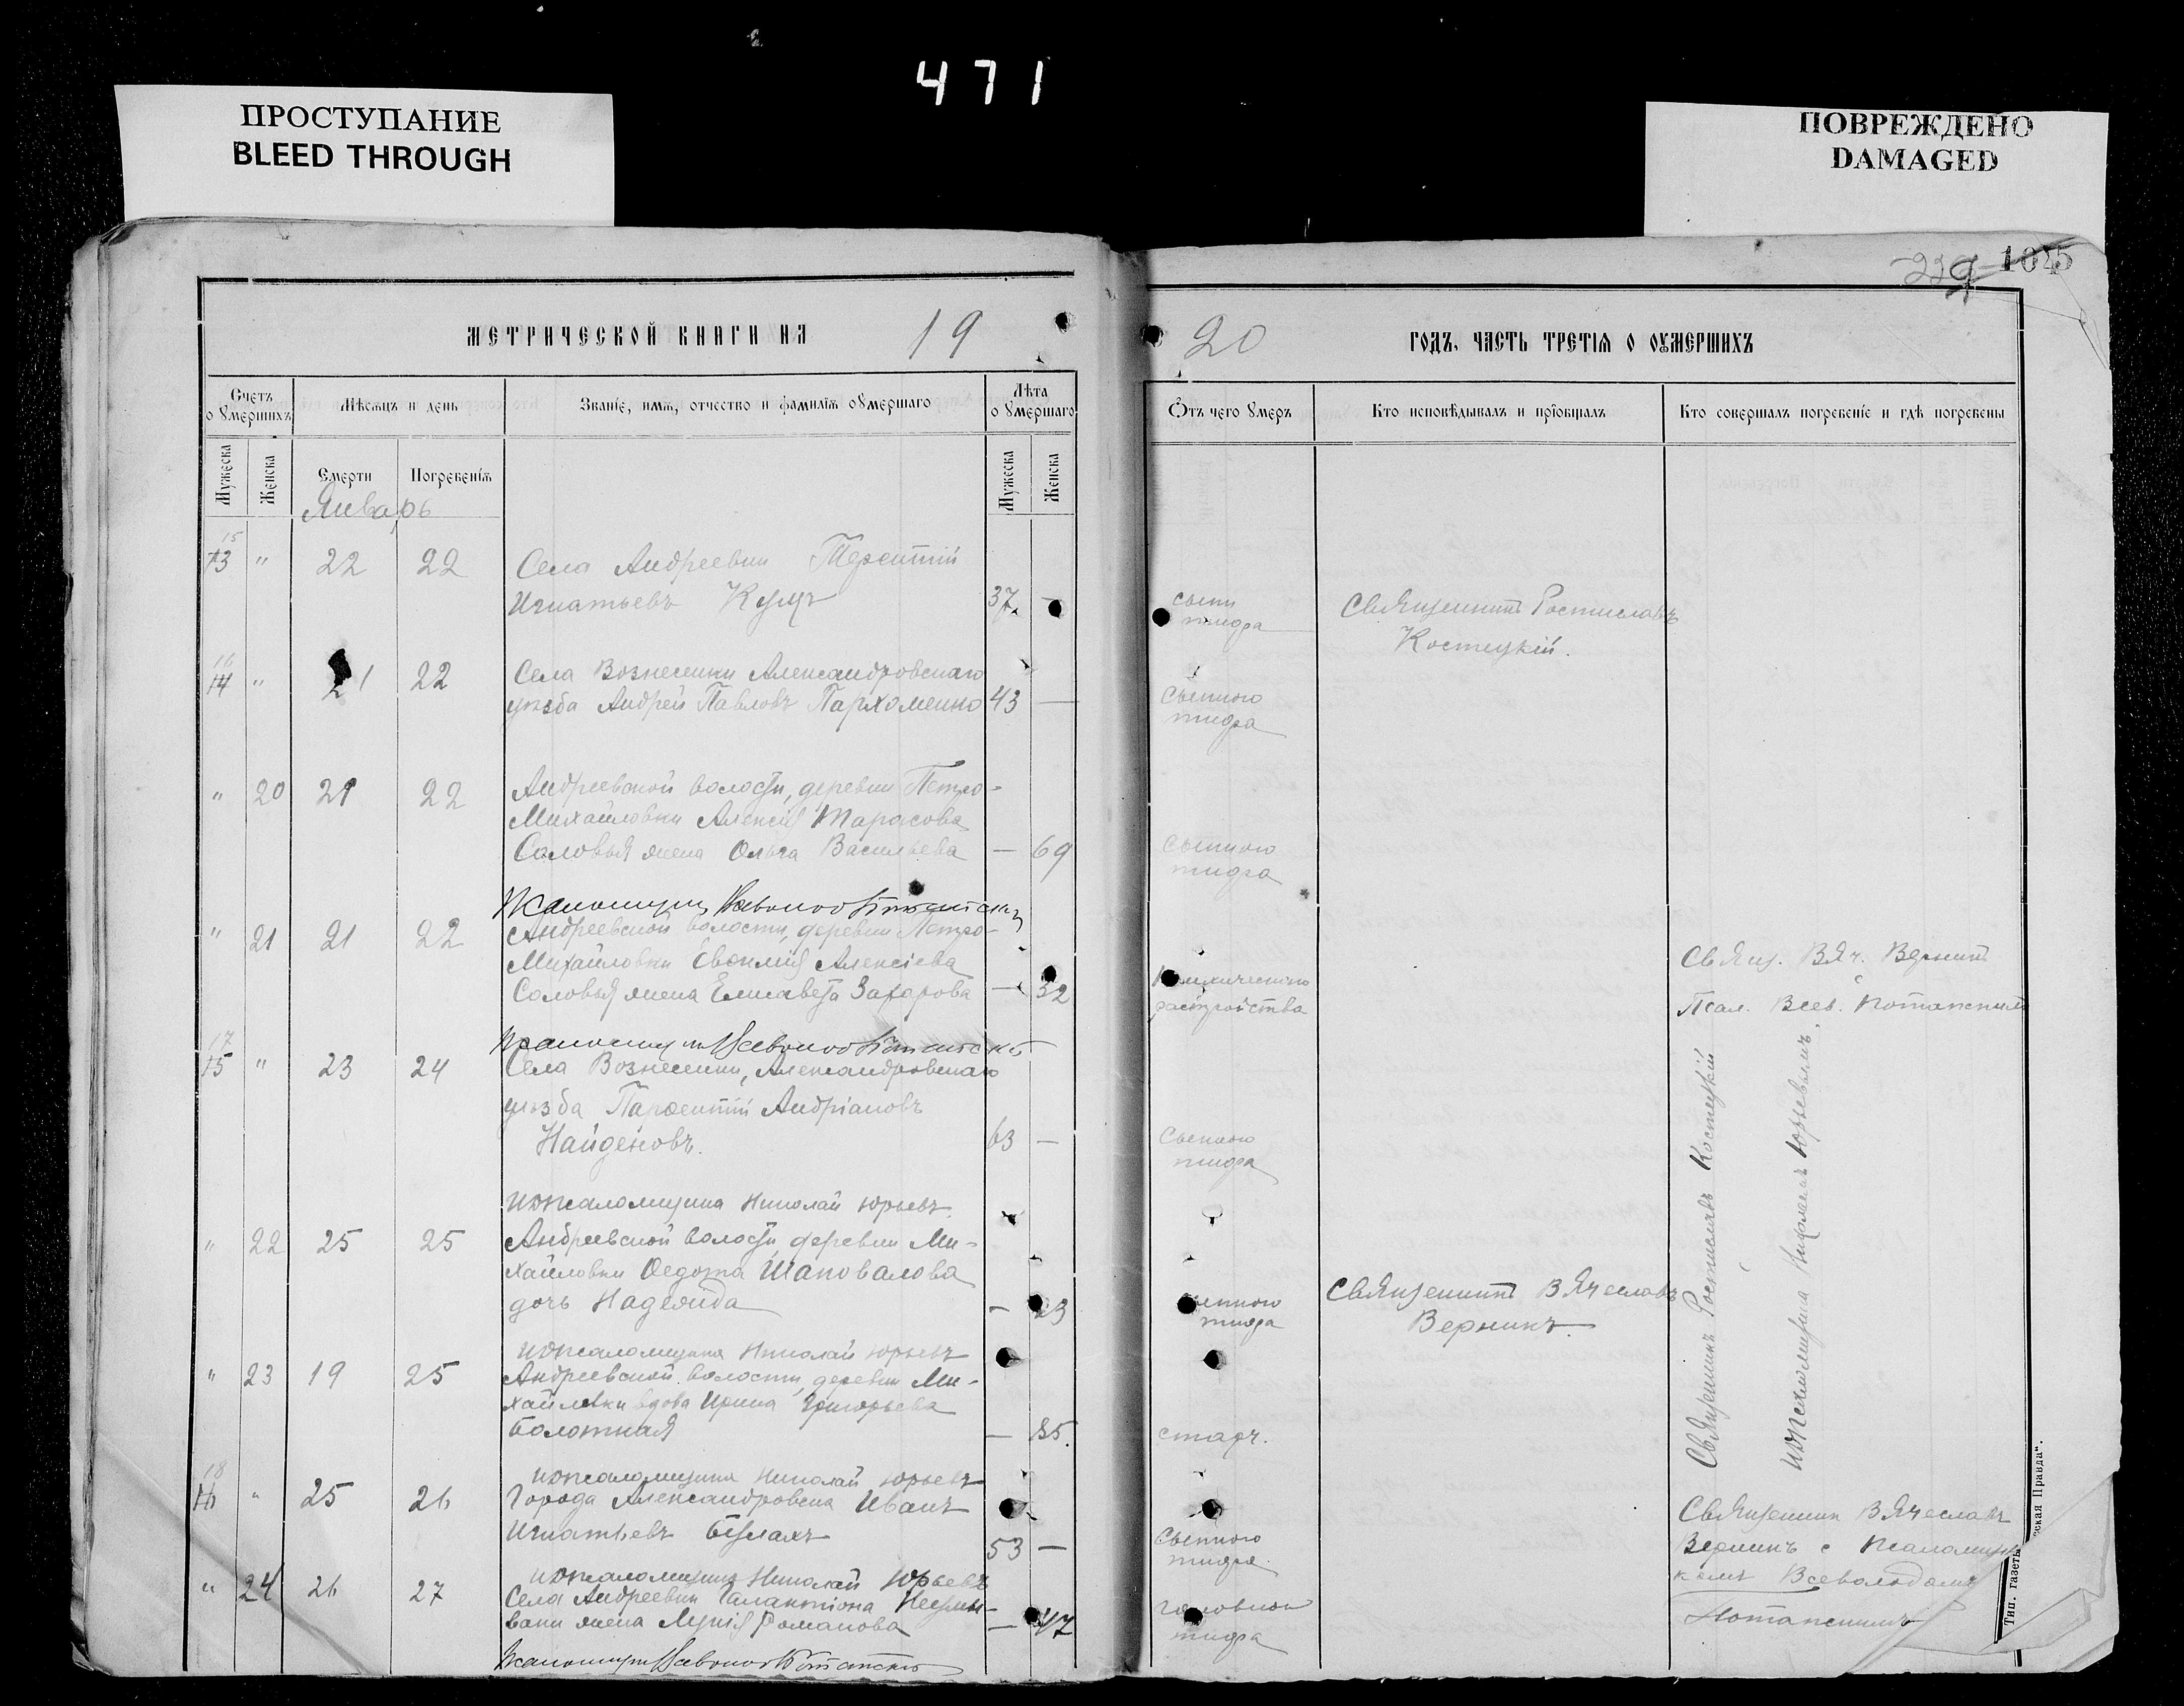 471
ПРОСТУПАНИЕ
BLEED THROUGH
ПОВРЕЖДЕНО
DAMAGED
1045
МЕТРИЧЕСКОЙ КНИГИ НА 19
20 ГОДЪ, ЧАСТЬ ТРЕТІЯ О ОУМЕРШИХЪ
Счетъ о умершихъ
Мѣсяцъ и день
Званіе, имя, отчество и фамилія оумершаго
Лѣта о умершаго
Мужеска
Женска
Смерти
Погребенія
Мужеска
Женска
Январь
15
13 " 22 22 Села Андреевки Терентій
Игнатьевъ Куцъ 37 —
16
14 " 21 22 Села Вознесенки Александровскаго
уѣзда Андрей Павловъ Пархоменко 43 —
" 20 21 22 Андреевской волости, деревни Петро-
Михайловки Алексія Тарасова
Соловья жена Ольга Васильева — 69
" 21 21 22 Андреевской волости, деревни Петро-
Михайловки Евѳимія Алексіева
Соловья жена Елисавета Захарова — 32
17
15 " 23 24 Села Вознесенки, Александровскаго
уѣзда Парѳентій Андріановъ
Найденовъ. 63 —
Николай Юрьевъ
" 22 25 25 Андреевской волости деревни Ми-
хайловки Ѳедота Шаповалова
дочь Надежда — 23
Николай Юрьевъ
" 23 19 25 Андреевской волости, деревни Ми-
хайловки вдова Ирина Григорьева
Болотная — 85.
Николай Юрьевъ
18
16 " 25 26 Города Александровска Иванъ
Игнатьевъ Булахъ 53 —
Николай Юрьевъ
" 24 26 27 Села Андреевки Галактіона
жена Лукія Романова — 47
Отъ чего умеръ
Кто исповѣдывалъ и пріобщалъ
Кто совершалъ погребеніе и гдѣ погребены
сыпн
тифа
Священникъ Ростиславъ
Костецкій.
Сыпного
тифа
Сыпного
тифа
разстройства
Свящ. Вяч. Верникъ
с
Псал. Всев. Потапскимъ
Сыпного
тифа
тифа
Священникъ Вячеславъ
Верникъ.
старч.
Сыпного
тифа.
головного
тифа
Священникъ Ростиславъ Костецкій
Николаемъ Юрьевымъ.
Священник Вячеславъ
Верникъ с Псаломщи
комъ Всеволодомъ
Потапскимъ
Тип. газеты
ская Правда".